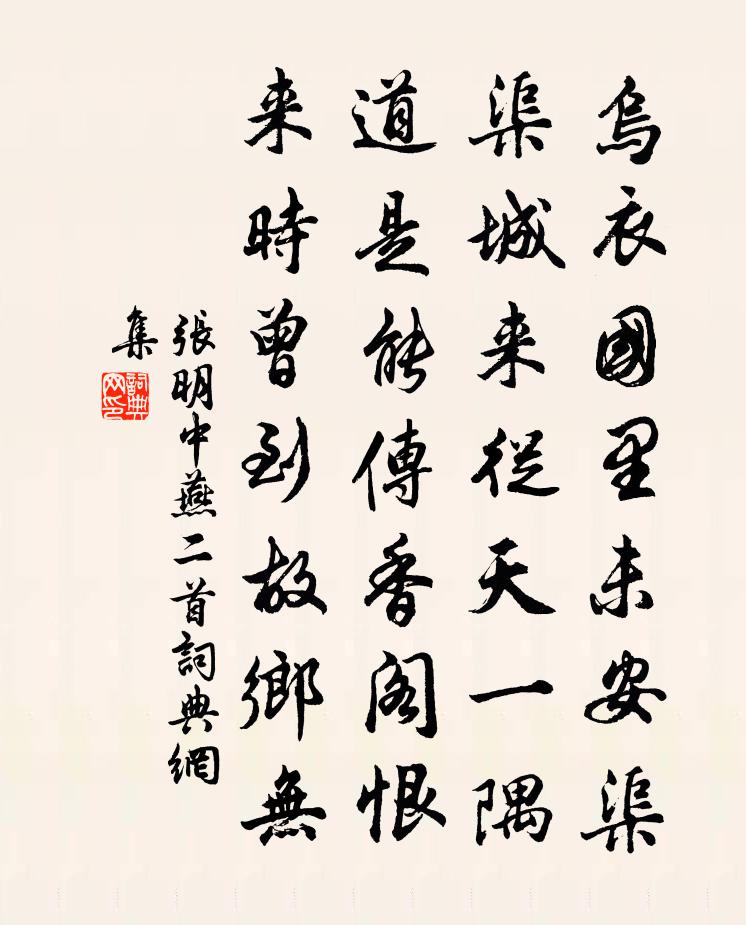 烏衣國里未安渠
渠城来從天一隅
道是能傳香閣恨
来時曾到故鄉無
張明中燕二首詞典網
集
詞典
网印